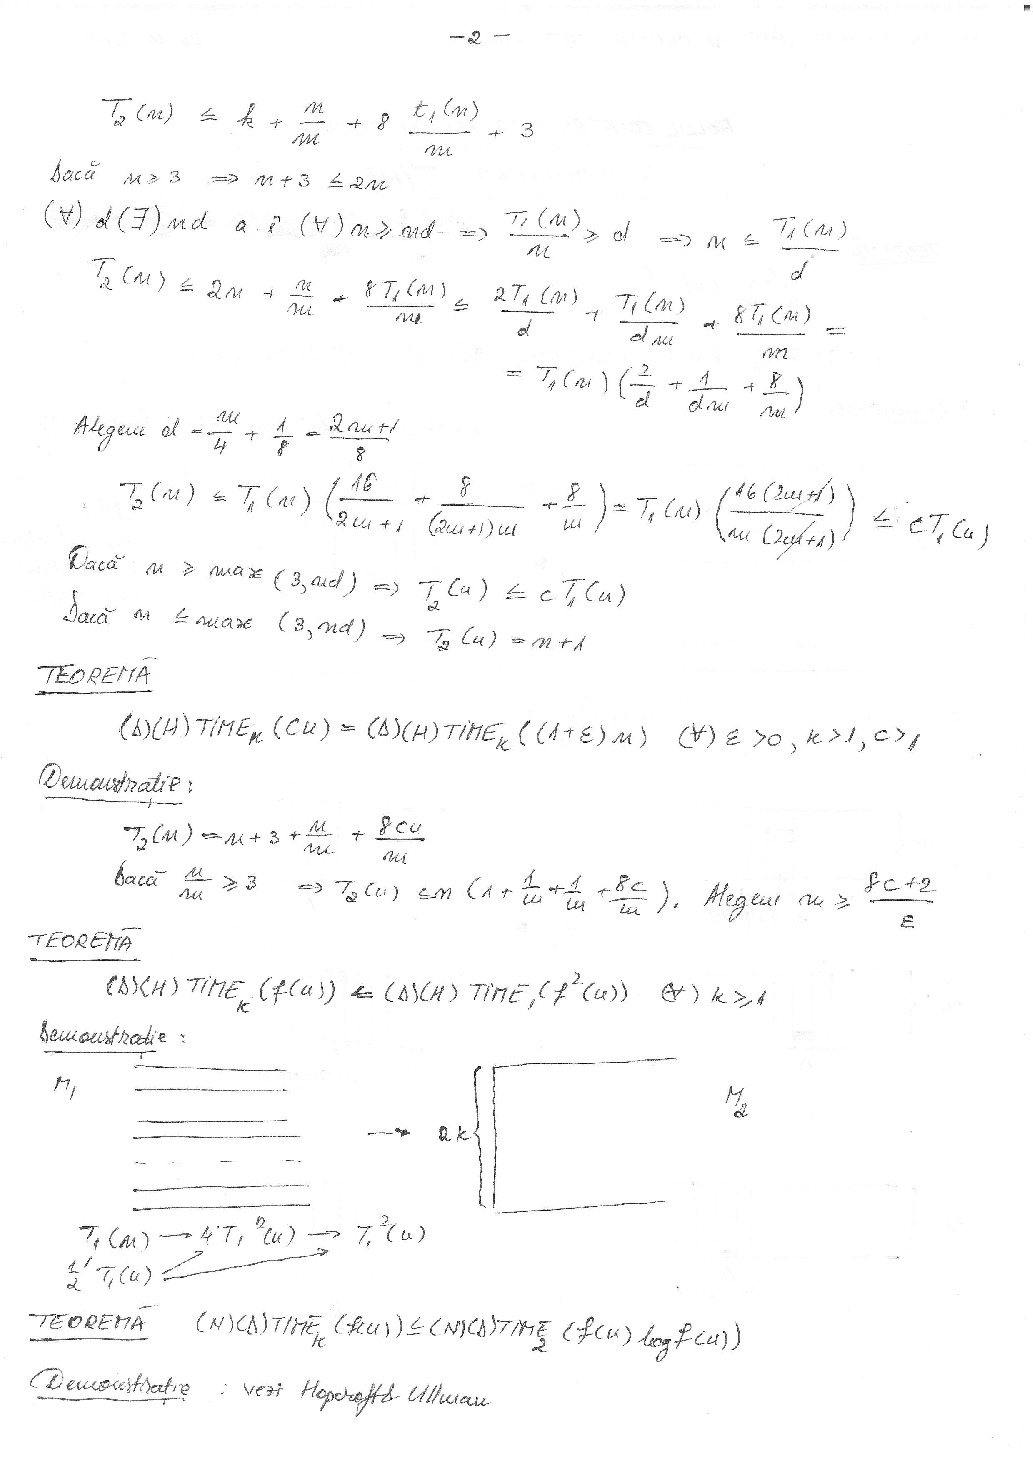 -2-
T₂(n) ≤ n + n/m + 8 t₁(n)/m + 3
Dacă n ≥ 3 ⇒ n+3 ≤ 2n
(∀) d (∃) nd a.î (∀) n ≥ nd ⇒ T₁(n)/n ≥ d ⇒ n ≤ T₁(n)/d
T₂(n) ≤ 2n + n/m + 8T₁(n)/m ≤ 2T₁(n)/d + T₁(n)/dm + 8T₁(n)/m =
= T₁(n) (2/d + 1/dm + 8/m)
Alegem d = m/4 + 1/8 = 2m+1/8
T₂(n) ≤ T₁(n) (16/2m+1 + 8/(2m+1)m + 8/m) = T₁(n) (16(2m+1)/m(2m+1)) ≤ cT₁(n)
Dacă n ≥ max (3, nd) ⇒ T₂(n) ≤ cT₁(n)
Dacă n ≤ max (3, nd) ⇒ T₂(n) = n+1
TEOREMĂ
(D)(N) TIME_k (Cn) = (D)(N) TIME_k ((1+ε)n) (∀) ε > 0, k > 1, c > 1
Demonstrație:
T₂(n) = n + 3 + n/m + 8cn/m
Dacă n/m ≥ 3 ⇒ T₂(n) ≤ n (1 + 1/m + 1/m + 8c/m). Alegem m ≥ 8c+2/ε
TEOREMĂ
(D)(N) TIME_k (f(n)) ≤ (D)(N) TIME₁ (f²(n)) (∀) k ≥ 1
Demonstrație:
M₁ → 2k { M₂
T₁(n) → 4T₁²(n) → T₁²(n)
1/2 T₁(n)
TEOREMĂ (N)(D)TIME_k (f(n)) ≤ (N)(D)TIME₂ (f(n) log f(n))
Demonstrație : vezi Hopcroft & Ullman